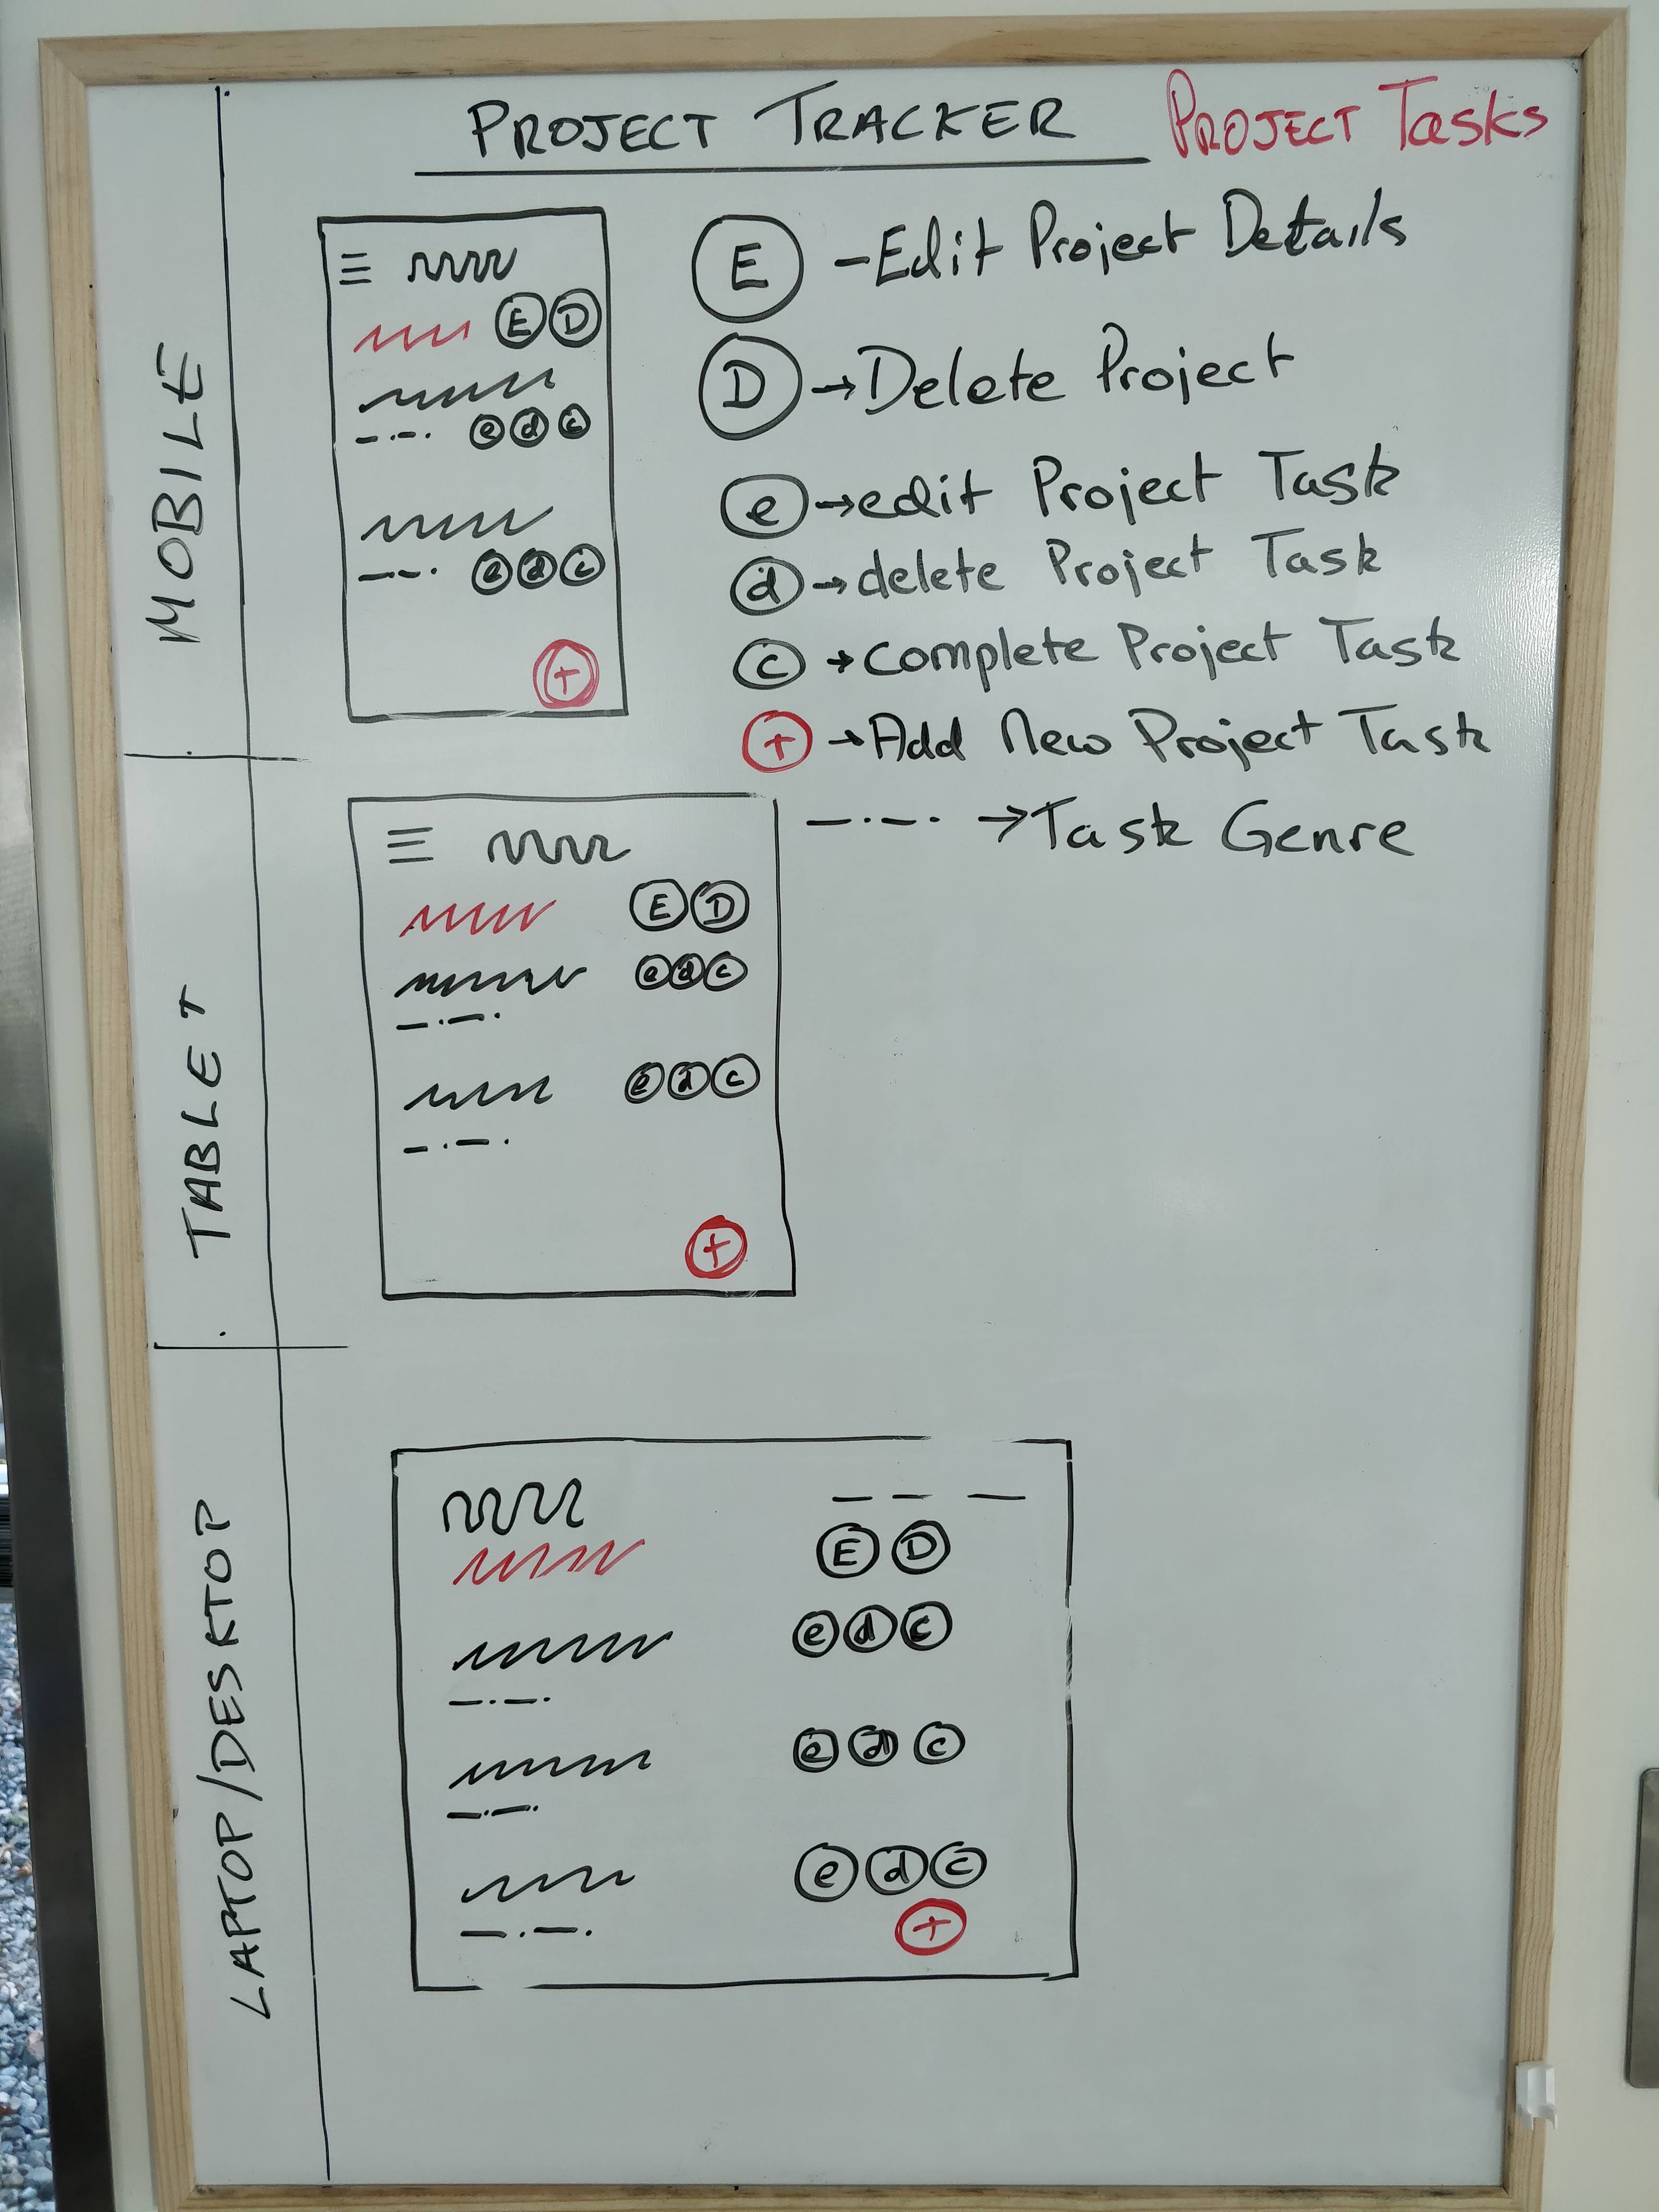 PROJECT TRACKER PROJECT Tasks
MOBILE
E D
e d c
e d c
+
E - Edit Project Details
D → Delete Project
e → edit Project Task
d → delete Project Task
c → complete Project Task
+ → Add New Project Task
→ Task Genre
TABLET
E D
e d c
e d c
+
LAPTOP/DESKTOP
E D
e d c
e d c
e d c
+